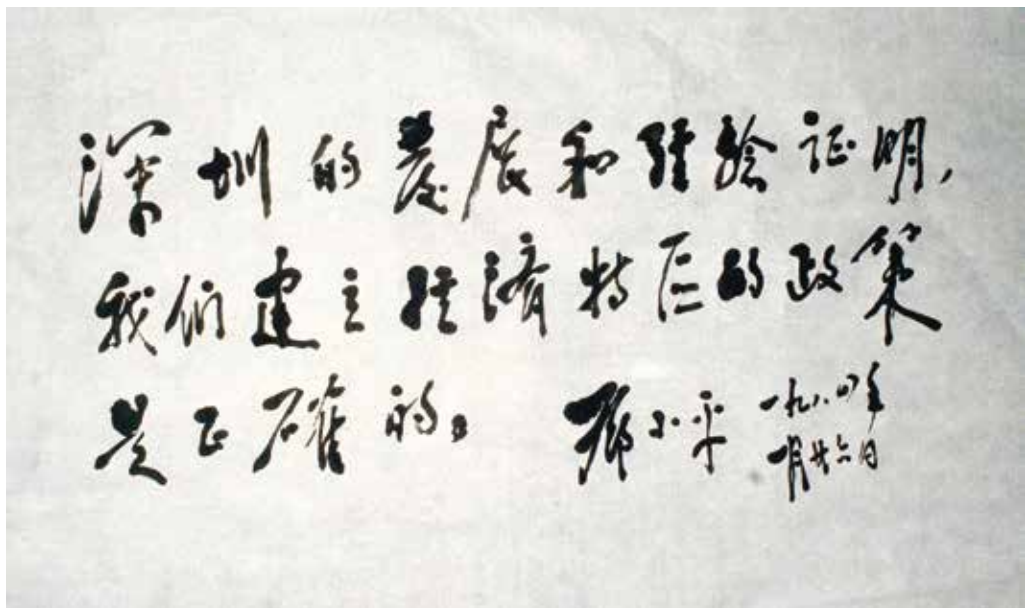 深圳的发展和经验证明，
我们建立经济特区的政策
是正确的。 邓小平 一九八四年
一月廿六日